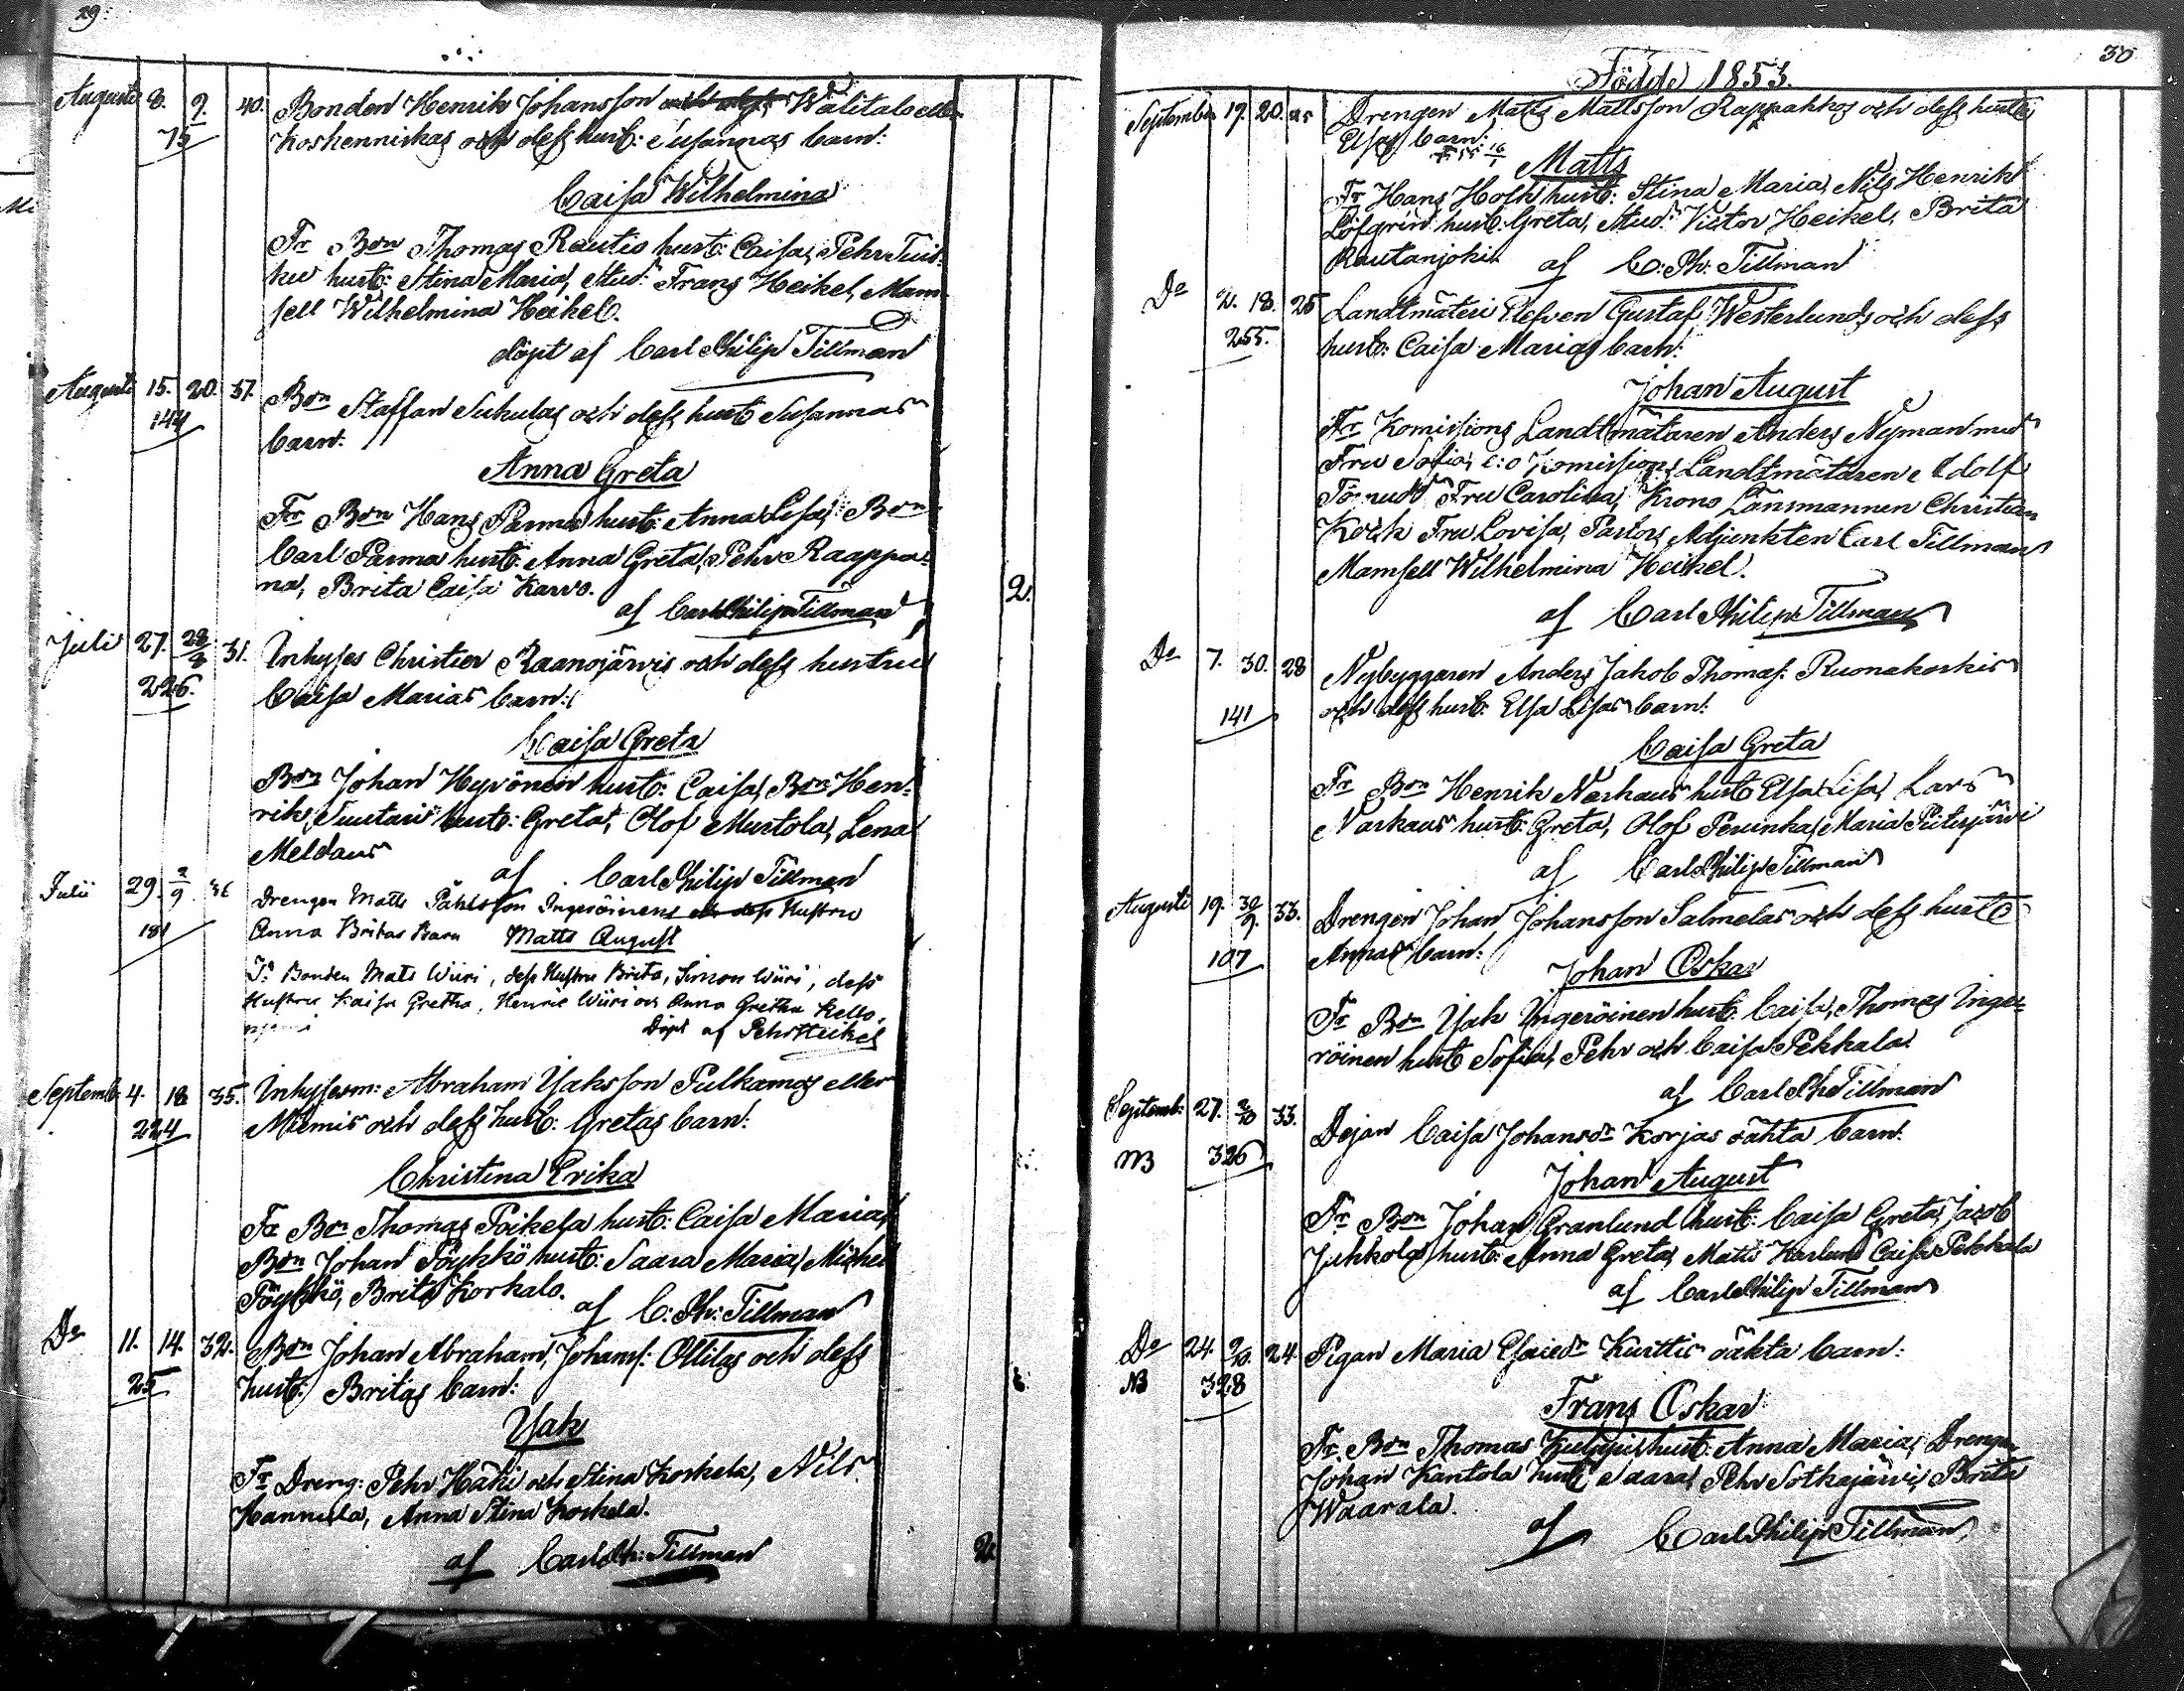 29.
Augusti 8. 9. 40. Bonden Henrik Johansson Walitalo eller
75 Koskenniskas och dess hust: Susannas barn:
Caisa Wilhelmina
Fr Bon Thomas Rautio hust: Caisa, Pehr Tuis-
ku hust: Stina Maria, Stud: Frans Heikel, Mam-
sell Wilhelmina Heikel.
döpt af Carl Philip Tillman
Augusti 15. 20. 37. Bon Staffan Sukulas och dess hust Susannas
144 barn:
Anna Greta
Fr Bon Hans Parma hust: Anna Lisa, Bon
Carl Parma hust: Anna Greta, Pehr Raappa-
na, Brita Caisa Karvo.
af Carl Philip Tillman
2.
Juli 27. 28/8 31. Inhyses Christier Raanojärvis och dess hustru
226. Caisa Marias barn:
Caisa Greta
Bon Johan Hyvönen hust: Caisa, Bon Hen-
rik Suutari hust: Greta, Olof Mustola, Lena
Meldaus
af Carl Philip Tillman
Julii 29. 2/9 36 Drengen Matts Påhlsson Ingeröinens och dess Hustru
181 Anna Britas Barn Matts August
Fr Bonden Mats Wiiri, dess Hustru Brita, Simon Wiiri, dess
Hustru Kaisa Gretha, Henric Wiiri och Anna Gretha Kello-
Döpt af Pehr Heikel
Septemb: 4. 18 35. Inhysesm: Abraham Isaksson Pulkamos eller
224 Miemis och dess hust: Gretas barn:
Christina Erika
Fr Bon Thomas Poikela hust: Caisa Maria,
Bon Johan Pöykkö hust: Saara Maria, Michel
Pöykkö, Brita Korkalo.
af C: Ph: Tillman
Do 11. 14. 32. Bon Johan Abraham Johanss: Ollilas och dess
25 hust: Britas barn:
Isak
Fr Dreng: Pehr Häki och Stina Koskela, Nils
Hannula, Anna Stina Koskela.
af Carl Ph: Tillman
2.
30
Födde 1853.
September 19. 20. Drengen Matts Mattsson Rappahkos och dess hustru
Elsas barn:
Matts
Fr Hans Hoch hust: Stina Maria, Nils Henrik
Löfgrén hust: Greta, Stud: Victor Heikel, Brita
Rautanjoki. af C: Ph: Tillman
Do 2. 18. 25 Landtmäteri Eleven Gustaf Westerlunds och dess
255. hust: Caisa Marias barn:
Johan August
Fr Komissions Landtmätaren Anders Nyman med
Fru Sofia, e:o Komissions Landtmätaren Adolf
Törnudd Fru Carolina, Krono Länsmannen Christian
Koch Fru Lovisa, Pastors Adjunkten Carl Tillman
Mamsell Wilhelmina Heikel.
af Carl Philip Tillman
Do 7. 30. 28 Nybyggaren Anders Jakob Thomass: Ruonakoskis
141 och dess hust: Elsa Lisas barn:
Caisa Greta
Fr Bon Henrik Narkaus hust Elsa Lisa, Lars
Narkaus hust: Greta, Olof Perunka, Maria Piitisjärvi
af Carl Philip Tillman
Augusti 19. 30/9. 33. Drengen Johan Johansson Salmelas och dess hust
107 Annas barn:
Johan Oskar
Fr Bon Isak Ingeröinen hust: Caisa, Thomas Inge-
röinen hust Sofia, Pehr och Caisa Pekkala
af Carl Ph Tillman
Septemb: 27. 2/10 33. Dejan Caisa Johansdr Korjas oäkta barn:
NB 326
Johan August
Fr Bon Johan Granlund hust: Caisa Greta, Jacob
Juhkola hust: Anna Greta, Matts Karlund Caisa Pekkala
af Carl Philip Tillman
Do 24. 2/10. 24 Pigan Maria Esaiedr Kurttis oäkta barn:
NB 328
Frans Oskar
Fr Bon Thomas Kulppi hust: Anna Maria, Drengen
Johan Kantola hust Saara, Pehr Sotkajärvi, Brita
Waarala.
af Carl Philip Tillman